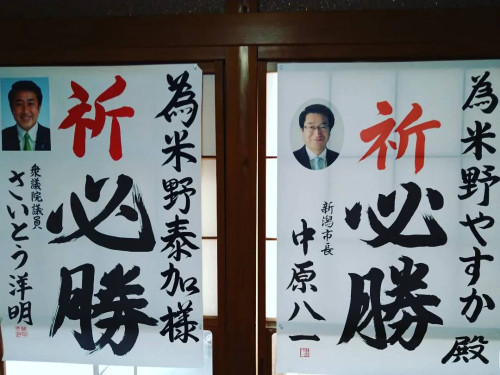 為米野泰加様
祈
必勝
衆議院議員
さいとう洋明
為米野やすか殿
祈
必勝
新潟市長
中原八一